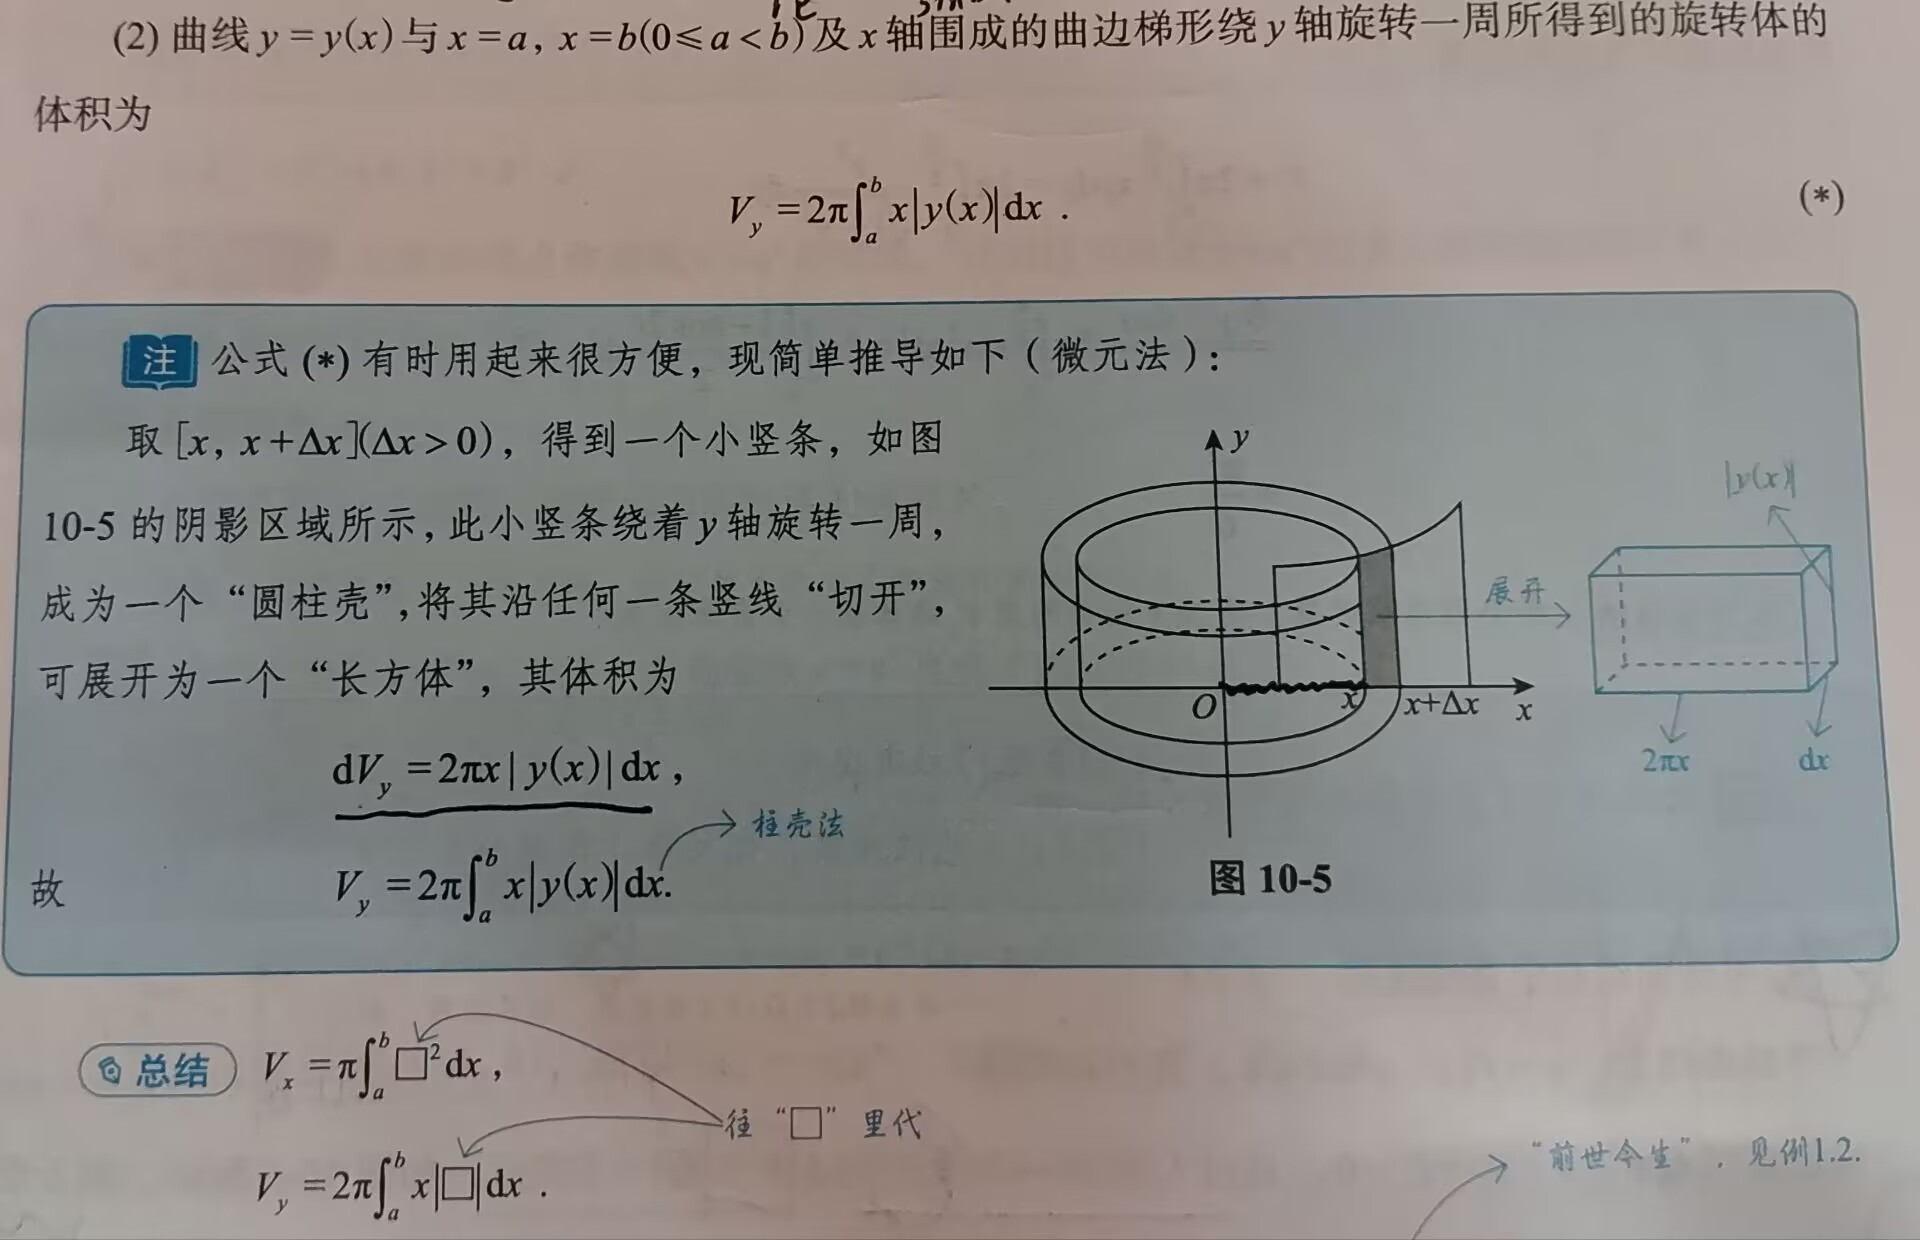 (2) 曲线 y = y(x) 与 x = a, x = b(0 ⩽ a < b) 及 x 轴围成的曲边梯形绕 y 轴旋转一周所得到的旋转体的
体积为
V_y = 2π∫_a^b x|y(x)|dx .
(*)
注 公式 (*) 有时用起来很方便，现简单推导如下（微元法）：
取 [x, x+Δx](Δx > 0)，得到一个小竖条，如图
10-5 的阴影区域所示，此小竖条绕着 y 轴旋转一周，
成为一个“圆柱壳”，将其沿任何一条竖线“切开”，
可展开为一个“长方体”，其体积为
dV_y = 2πx|y(x)|dx ,
柱壳法
故 V_y = 2π∫_a^b x|y(x)|dx.
y
|y(x)|
展开
O
x
x+Δx
x
2πx
dx
图 10-5
总结 V_x = π∫_a^b □² dx ,
往“□”里代
V_y = 2π∫_a^b x|□|dx .
“前世今生”，见例1.2.